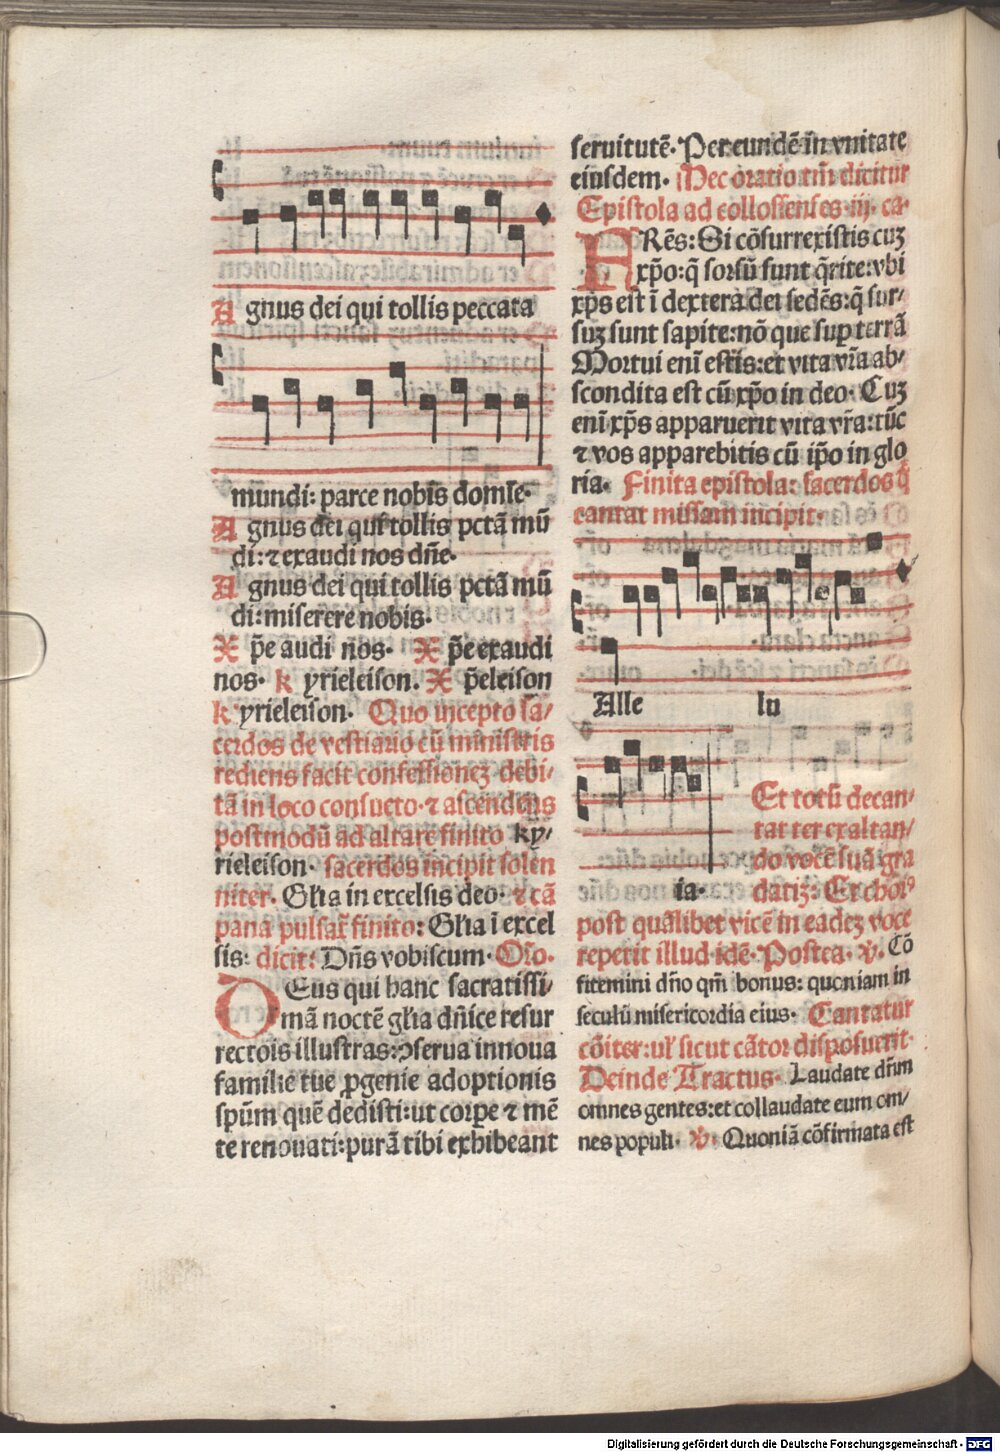 Agnus dei qui tollis peccata
mundi: parce nobis domīe·
Agnus dei qui tollis pctā mū
di: ⁊ exaudi nos dn̄e·
Agnus dei qui tollis pctā mū
di: miserere nobis·
Xp̄e audi nos· Xp̄e exaudi
nos· kyrieleison. Xp̄eleison
kyrieleison· Quo incepto sa/
cerdos de vestiario cū ministris
rediens facit confessioneꝫ debi/
tā in loco consueto· ⁊ ascendens
postmodū ad altare finito ky/
rieleison· sacerdos incipit solen
niter· Gl̄ia in excelsis deo· ⁊ cā
pana pulsat̄ finito: Gl̄ia ī excel
sis: dicit: Dn̄s vobiscum· Or̄o·
Deus qui hanc sacratissi/
mā noctē gl̄ia dn̄ice resur
rectois illustras: ↄserua in noua
familie tue ꝓgenie adoptionis
sp̄um quē dedisti: ut corpe ⁊ mē
te renouati: purā tibi exhibeant
seruitutē· Per eundē in vnitate
eiusdem· Hec oratio tm̄ dicitur
Epistola ad collossenses ·iij· ca·
FRēs: Si cōsurrexistis cuꝫ
xp̄o: q̄ sorsū sunt q̄rite: vbi
xp̄s est ī dextera dei sedēs: q̄ sur/
suꝫ sunt sapite: nō que sup terrā
Mortui enī estis: et vita vr̄a ab/
scondita est cū xp̄o in deo· Cuꝫ
enī xp̄s apparuerit vita vr̄a: tūc
⁊ vos apparebitis cū ip̄o in glo
ria· Finita epistola: sacerdos q̄
cantat missam incipit·
Alle lu
ia·
Et totū decan/
tat ter exaltan/
do vocē suā gra
datiꝫ: Et chorꝰ
post qualibet vicē in eadeꝫ voce
repetit illud idē· Postea· ℣· Cō
fitemini dn̄o qm̄ bonus: quoniam in
seculū misericordia eius· Cantatur
cōiter: ul̄ sicut cātor disposuerit·
Deinde Tractus· Laudate dn̄m
omnes gentes: et collaudate eum om/
nes populi· ℣· Quoniā cōfirmata est
Digitalisierung gefördert durch die Deutsche Forschungsgemeinschaft - DFG